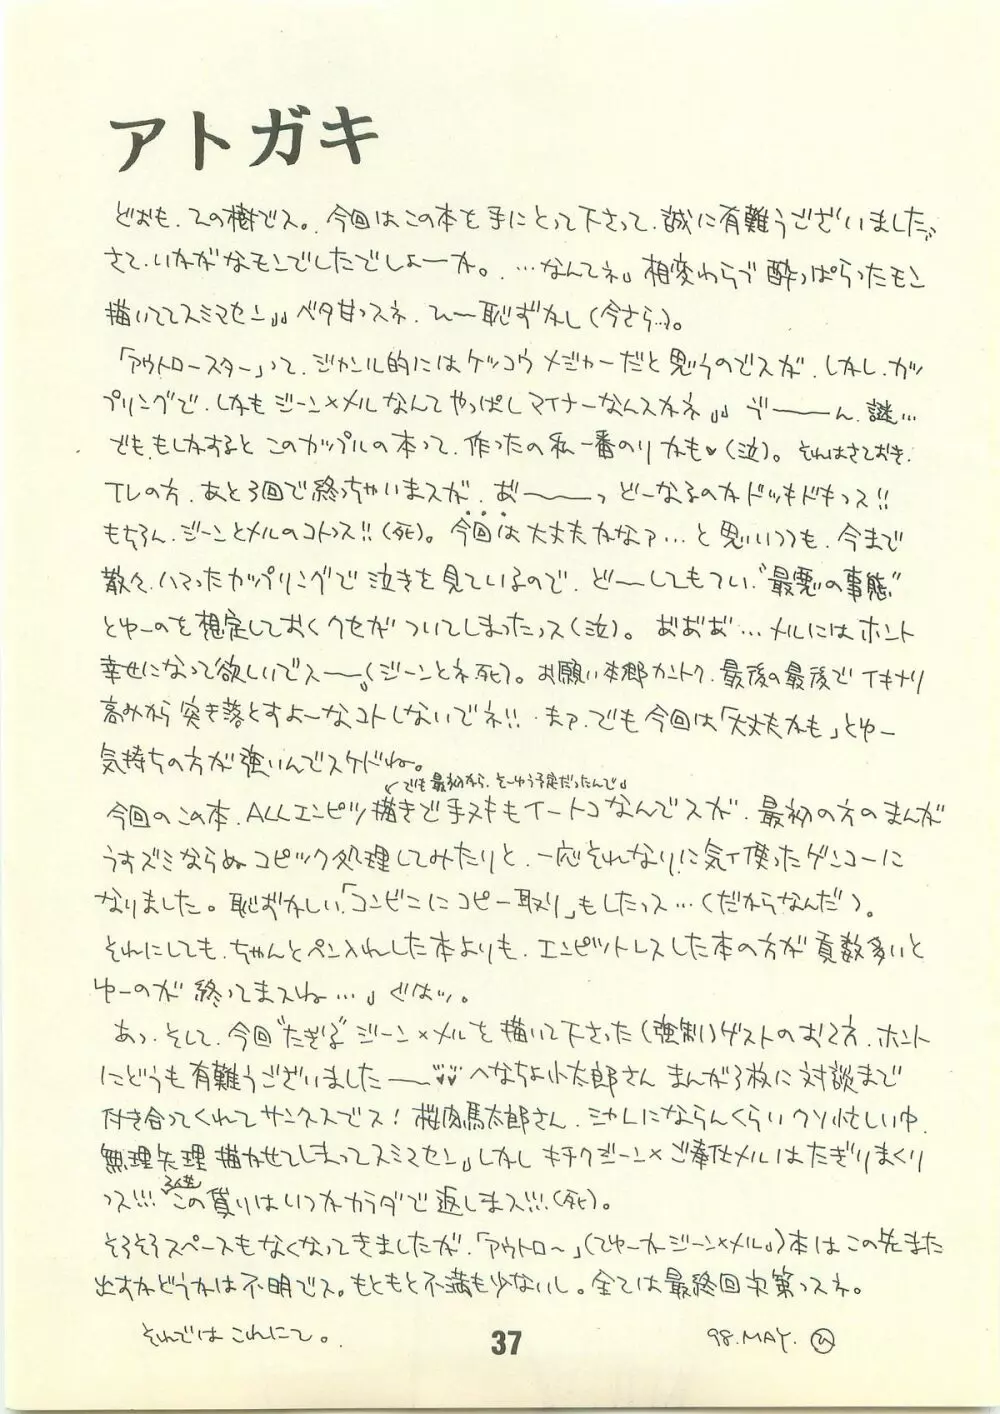 アトガキ
どおも、ひの樹でス。今回はこの本を手にとって下さって、誠に有難うございました。
さて、いかがなモンでしたでしょーか。…なんてネ。相変わらず酔っぱらったモン
描いててスミマセン。ベタ甘っスネ、ひ〜恥ずかし(今さら…)。
「アウトロースター」って、ジャンル的にはケッコウメジャーだと思うのでスが、しかし、カッ
プリングで、しかもジーン×メルなんてやっぱしマイナーなんスかネ。ゔーーーん、謎…
でも、もしかすると、このカップルの本って、作ったの私一番のりかも♥(泣)。それはさておき、
TVの方、あと3回で終っちゃいまスが、あ゙ーーーっどーなるのかドッキドキっス!!
もちろん、ジーンとメルのコトっス!!(死)。今回は大丈夫かなァ…と思いつつも、今まで
散々、ハマったカップリングで泣きを見ているので、どーーしてもてい、"最悪の事態"
とゆーのを想定しておくクセがついてしまったっス(泣)。あ゙あ゙あ゙…メルにはホント
幸せになって欲しいでスーー(ジーンとネ、死)。お願い本郷カントク、最後の最後でイキナリ
高みから突き落とすよーなコトしないでネ!!まァ、でも今回は「大丈夫かも」とゆー
気持ちの方が強いんでスケドね。
でも最初から、そーゆう予定だったんで
今回のこの本、ALLエンピツ描きで手ヌキもイートコなんでスが、最初の方のまんが
うすズミならぬコピック処理してみたりと、一応それなりに気イ使ったゲンコーに
なりました。恥ずかしい、「コンビニにコピー取り」もしたっス…(だからなんだ)。
それにしても、ちゃんとペン入れした本よりも、エンピツトレスした本の方が頁数多いと
ゆーのが終ってまスね…。ぐはッ。
あっ、そして、今回"たぎる"ジーン×メルを描いて下さった(強制)ゲストのお2方、ホント
にどうも有難うございましたーー♥♥へなちょ小太郎さん、まんが3枚に対談まで
付き合ってくれてサンクスでス!桜肉馬太郎さん、ミカレにならんくらいクソ忙しい中、
無理矢理描かせてしまってスミマセン。しかしキチクジーン×ご奉仕メルはたぎりまくり
っス!!!この貸りはいつかカラダで返しまス!!!(死)。
そろそろスペースもなくなってきましたが、「アウトロ〜」(てゆーかジーン×メル)本はこの先また
出すかどうかは不明でス。もともと不満も少ないし。全ては最終回次第っスネ。
それではこれにて。
98.MAY. ひ
37